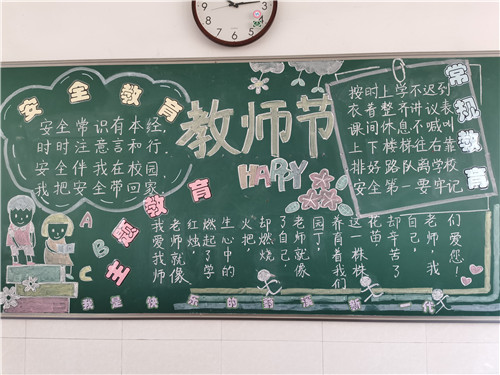 安全教育
安全常识有本经,
时时注意言和行.
安全伴我在校园,
我把安全带回家.
教师节
HAPPY
常规教育
按时上学不迟到
衣着整齐讲议表
课间休息不喊叫
上下楼梯往右靠
排好路队离学校
安全第一要牢记
主题教育
A
B
C
我爱我师
老师就像
红烛,
燃起了学
生心中的
火把,
却燃烧
了自己,
老师就像
园丁,
养育着我们
这一株株
花苗,
却辛苦了
自己,
老师,我
们爱您!
我是快乐的 新一代